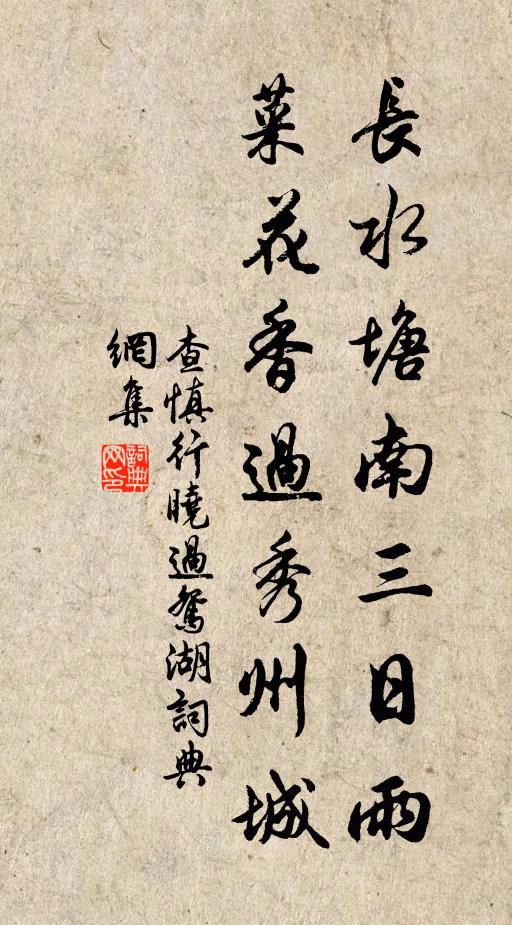 長水塘南三日雨
菜花香過秀州城
查慎行曉過鴛湖詞典
網集
詞典
网印